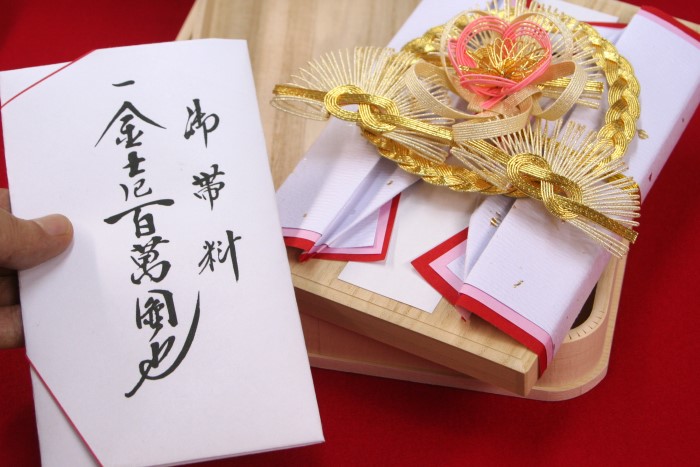 御帯料
一金壱百萬圓也